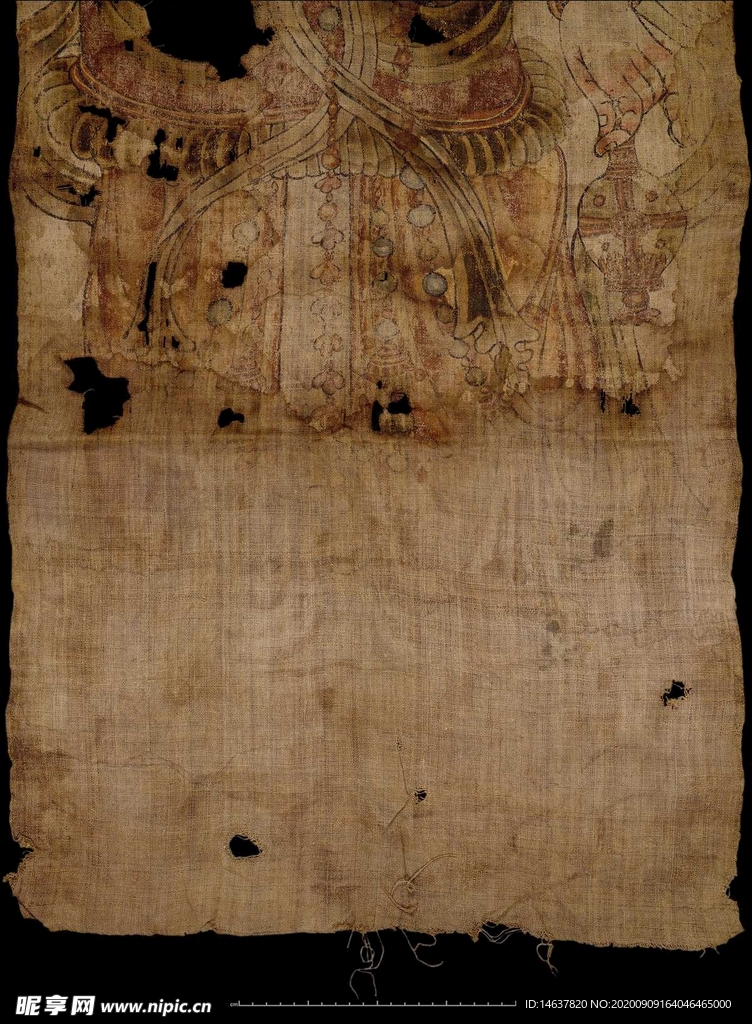 昵享网 www.nipic.cn
cm
ID:14637820 NO:20200909164046465000